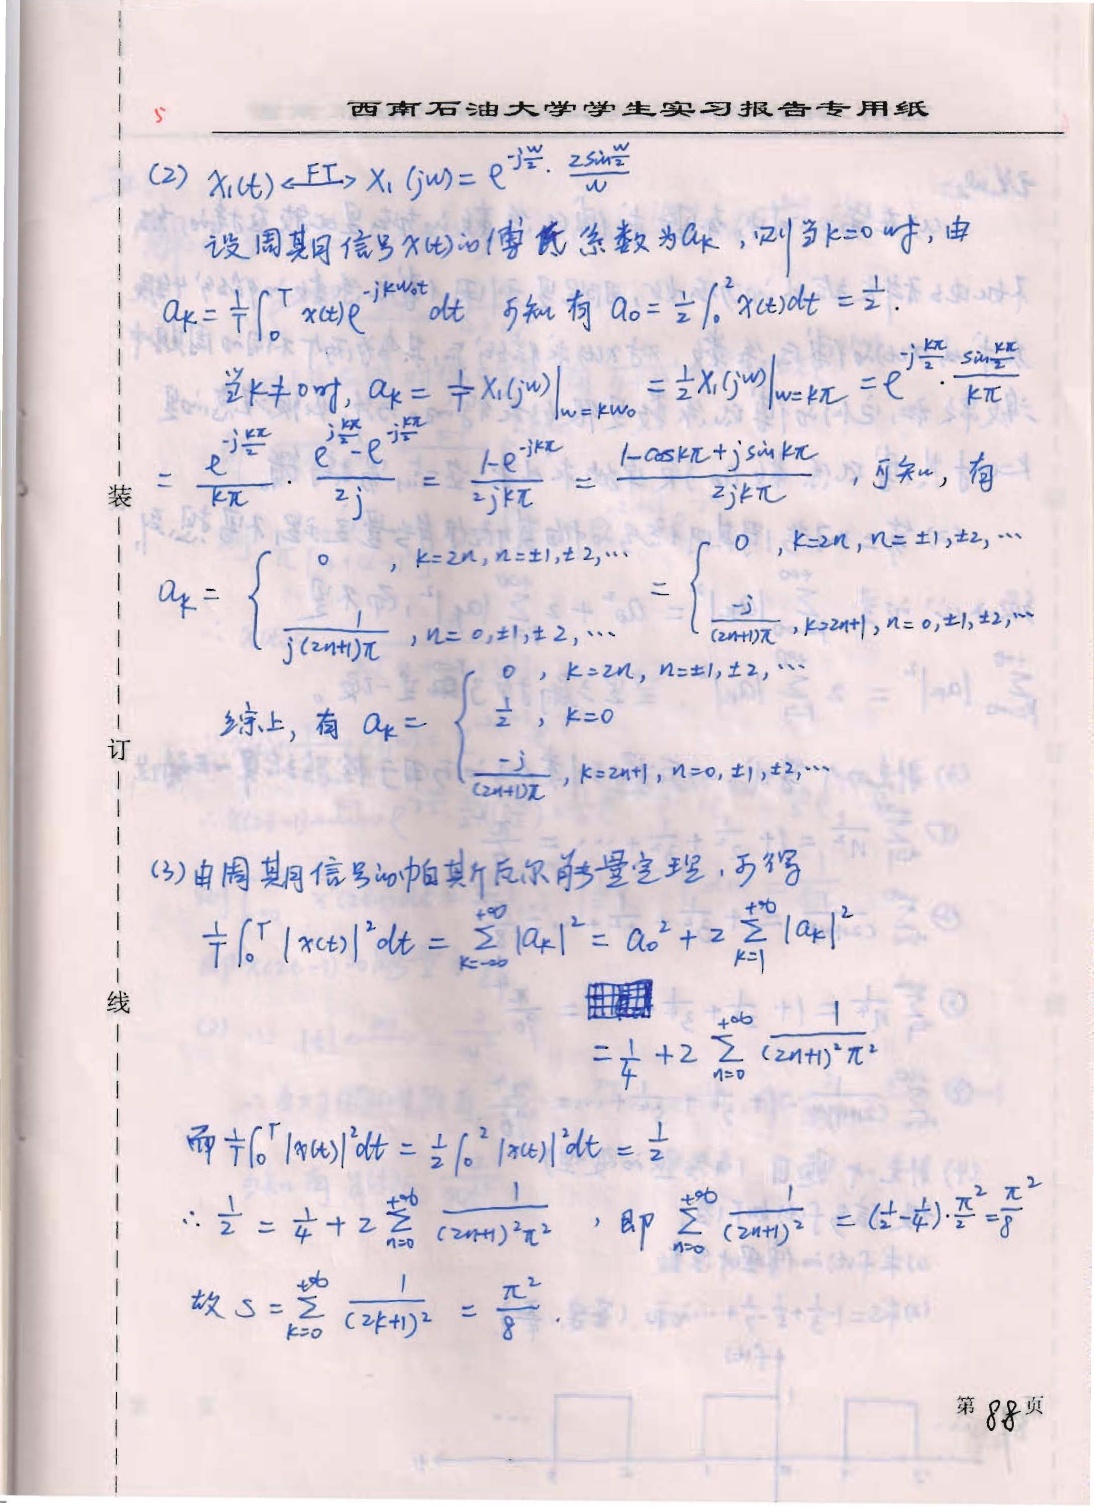 5
西南石油大学学生实习报告专用纸
(2) x₁(t) <—FT—> X₁(jw) = e^{-j\frac{w}{2}} · \frac{2sin\frac{w}{2}}{w}
设周期信号x(t)的傅氏系数为a_k，则当k=0时，由
a_k = \frac{1}{T}∫_0^T x(t)e^{-jkw₀t}dt 可知有 a₀ = \frac{1}{2}∫_0^2 x(t)dt = \frac{1}{2}.
当k≠0时, a_k = \frac{1}{T}X₁(jw)|_{w=kw₀} = \frac{1}{2}X₁(jw)|_{w=kπ} = e^{-j\frac{kπ}{2}} · \frac{sin\frac{kπ}{2}}{kπ}
= \frac{e^{-j\frac{kπ}{2}}}{kπ} · \frac{e^{j\frac{kπ}{2}} - e^{-j\frac{kπ}{2}}}{2j} = \frac{1-e^{-jkπ}}{2jkπ} = \frac{1-coskπ+jsinkπ}{2jkπ}，可知，有
a_k = { 0 , k=2n, n=±1,±2,… ; \frac{1}{j(2n+1)π} , n=0,±1,±2,… = { 0 , k=2n, n=±1,±2,… ; \frac{-j}{(2n+1)π} , k=2n+1, n=0,±1,±2,…
综上，有 a_k = { 0 , k=2n, n=±1,±2,… ; \frac{1}{2} , k=0 ; \frac{-j}{(2n+1)π} , k=2n+1, n=0,±1,±2,…
(3)由周期信号的帕斯瓦尔能量定理，可得
\frac{1}{T}∫_0^T |x(t)|²dt = \sum_{k=-∞}^{+∞}|a_k|² = a₀² + 2\sum_{k=1}^{+∞}|a_k|²
= \frac{1}{4} + 2\sum_{n=0}^{+∞} \frac{1}{(2n+1)²π²}
而 \frac{1}{T}∫_0^T |x(t)|²dt = \frac{1}{2}∫_0^2 |x(t)|²dt = \frac{1}{2}
∴ \frac{1}{2} = \frac{1}{4} + 2\sum_{n=0}^{+∞} \frac{1}{(2n+1)²π²} ，即 \sum_{n=0}^{+∞} \frac{1}{(2n+1)²} = (\frac{1}{2}-\frac{1}{4})·\frac{π²}{2} = \frac{π²}{8}
故 S = \sum_{k=0}^{+∞} \frac{1}{(2k+1)²} = \frac{π²}{8}.
第88页
装
订
线